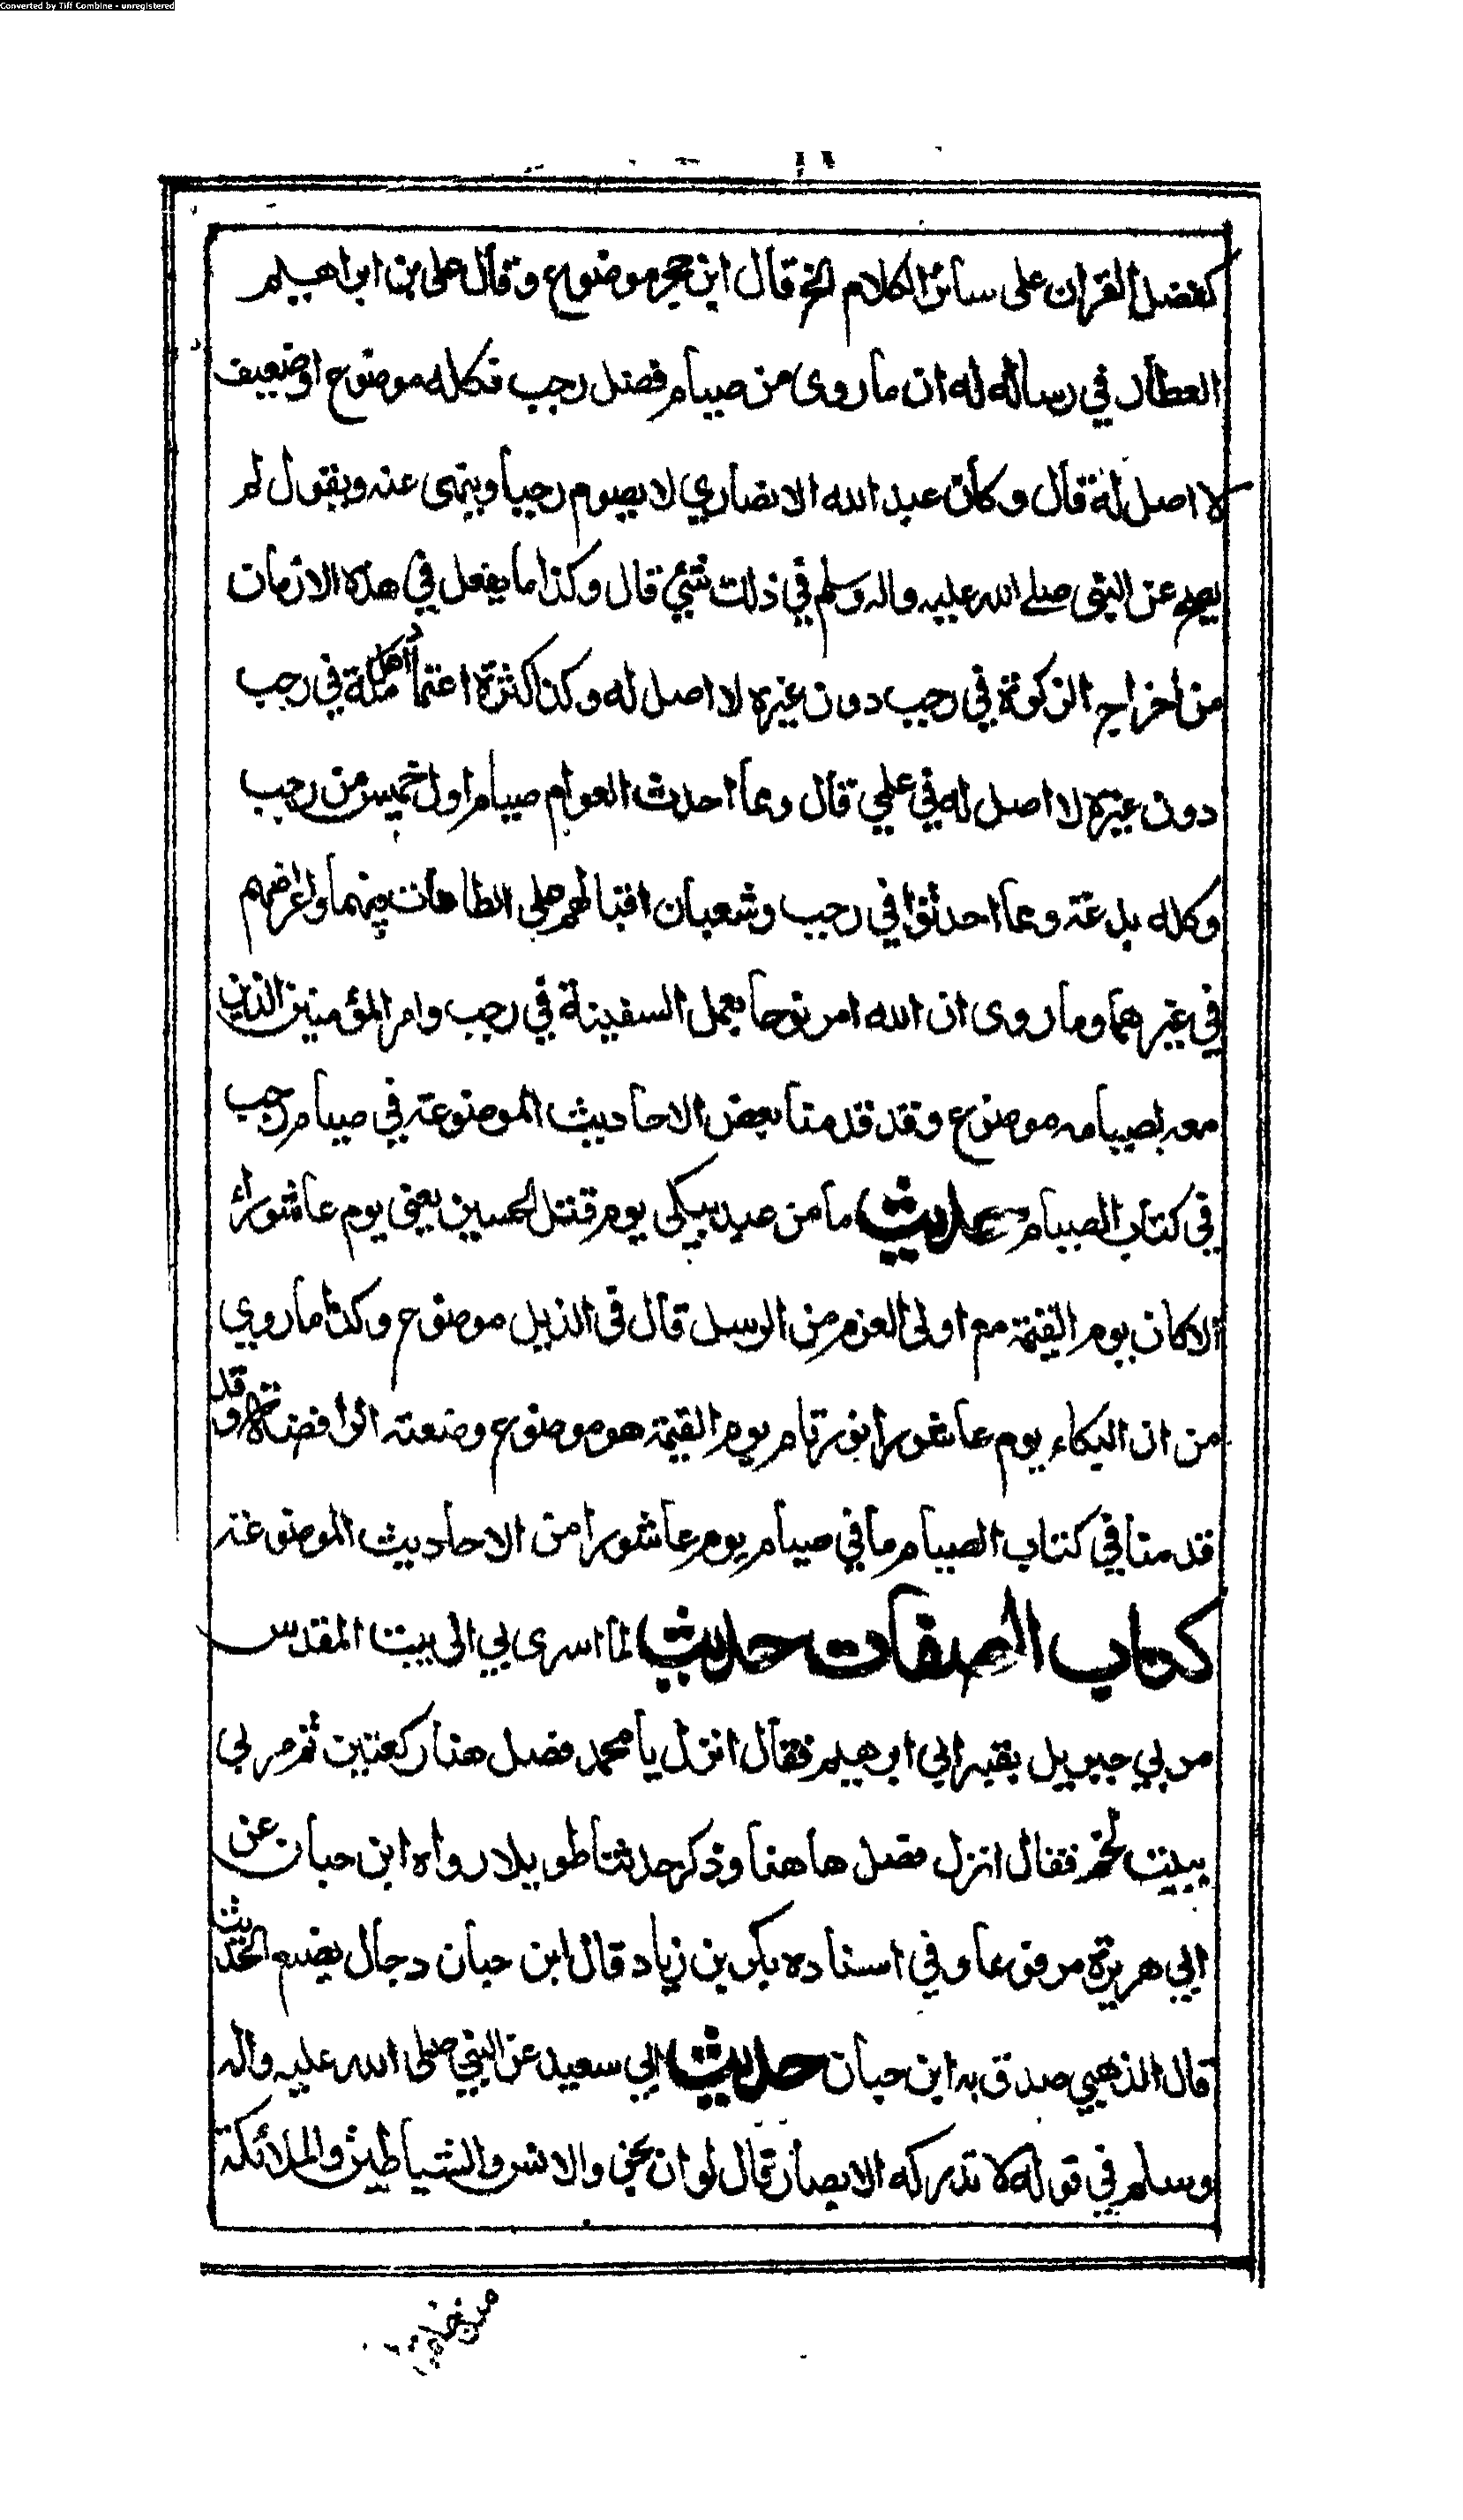 Converted by Tiff Combine - unregistered
كفضل القران على سائر الكلام الخ قال ابن حجر موضوع وقال على بن ابراهيم
العطار في رسالة له ان ما روى من صيام فضل رجب فكله موضوع اوضعيف
لا اصل له قال وكان عبد الله الانصاري لا يصوم رجبا وينهى عنه ويقول لم
يصح عن النبى صلے الله عليه واله وسلم في ذلك شئي قال وكذا ما يفعل في هذه الازمان
من اخراج الزكوة في رجب دون غيره لا اصل له وكذا كثرة اعتمار اهل مكة في رجب
دون غيره لا اصل له في علمي قال ومما احدث العوام صيام اول خميس من رجب
وكله بدعة ومما احدثوا في رجب وشعبان اقبالهم على الطاعات فيهما واعراضهم
في غيرهما وما روى ان الله امر نوحا بعمل السفينة في رجب وامر المؤمنين الذين
معه بصيامه موضوع وقد قدمنا بعض الاحاديث الموضوعة في صيام رجب
في كتاب الصيام حديث ما من عبد يبكى يوم قتل الحسين يعنى يوم عاشوراء
الا كان يوم القيمة مع اولى العزم من الرسل قال في الذيل موضوع وكذا ما روي
من ان البكاء يوم عاشورا نور تام يوم القيمة هو موضوع وضعته الرافضة وقد
قدمنا في كتاب الصيام ما في صيام يوم عاشورا من الاحاديث الموضوعة
كتاب الصفات حديث لما اسرى بي الى بيت المقدس
مر بي جبريل بقبر ابي ابرهيم فقال انزل يا محمد فصل هنا ركعتين ثم مر بي
ببيت لحم فقال انزل فصل هاهنا وذكر حديثا طويلا رواه ابن حبان عن
ابي هريرة مرفوعا وفي اسناده بكر بن زياد قال ابن حبان دجال يضع الحديث
قال الذهبي صدق به ابن حبان حديث ابي سعيد عن النبي صلى الله عليه واله
وسلم في قوله لا تدركه الابصار قال لو ان الجن والانس والشياطين والملائكة